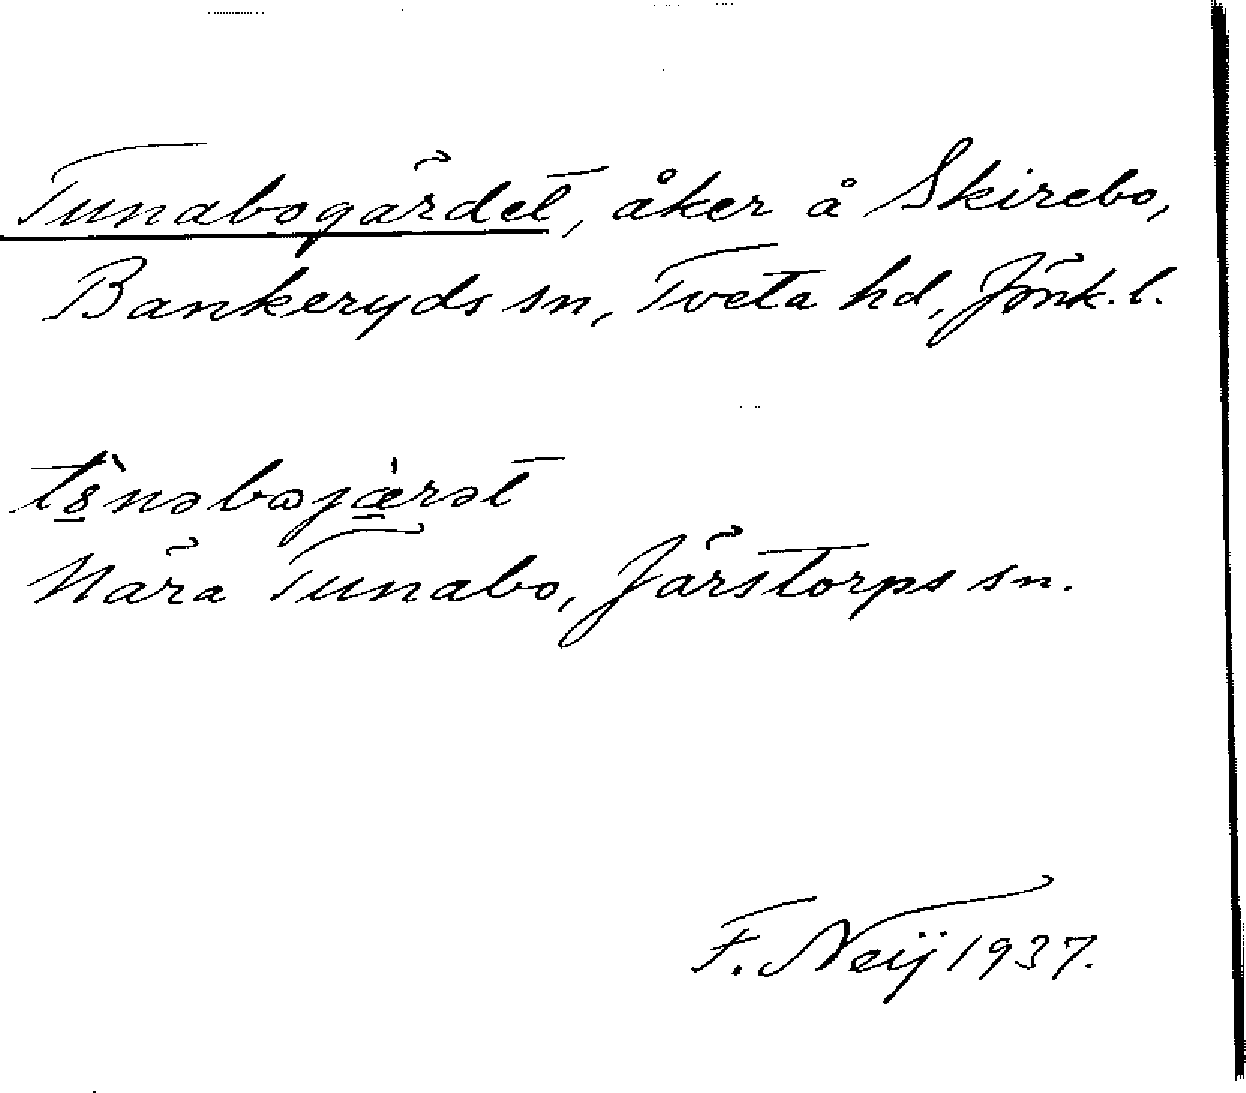 Tunabogärdet, åker å Skirebo,
Bankeryds sn, Tveta hd, Jönk. l.
Nära Tunabo, Järstorps sn.
F. Neij 1937.